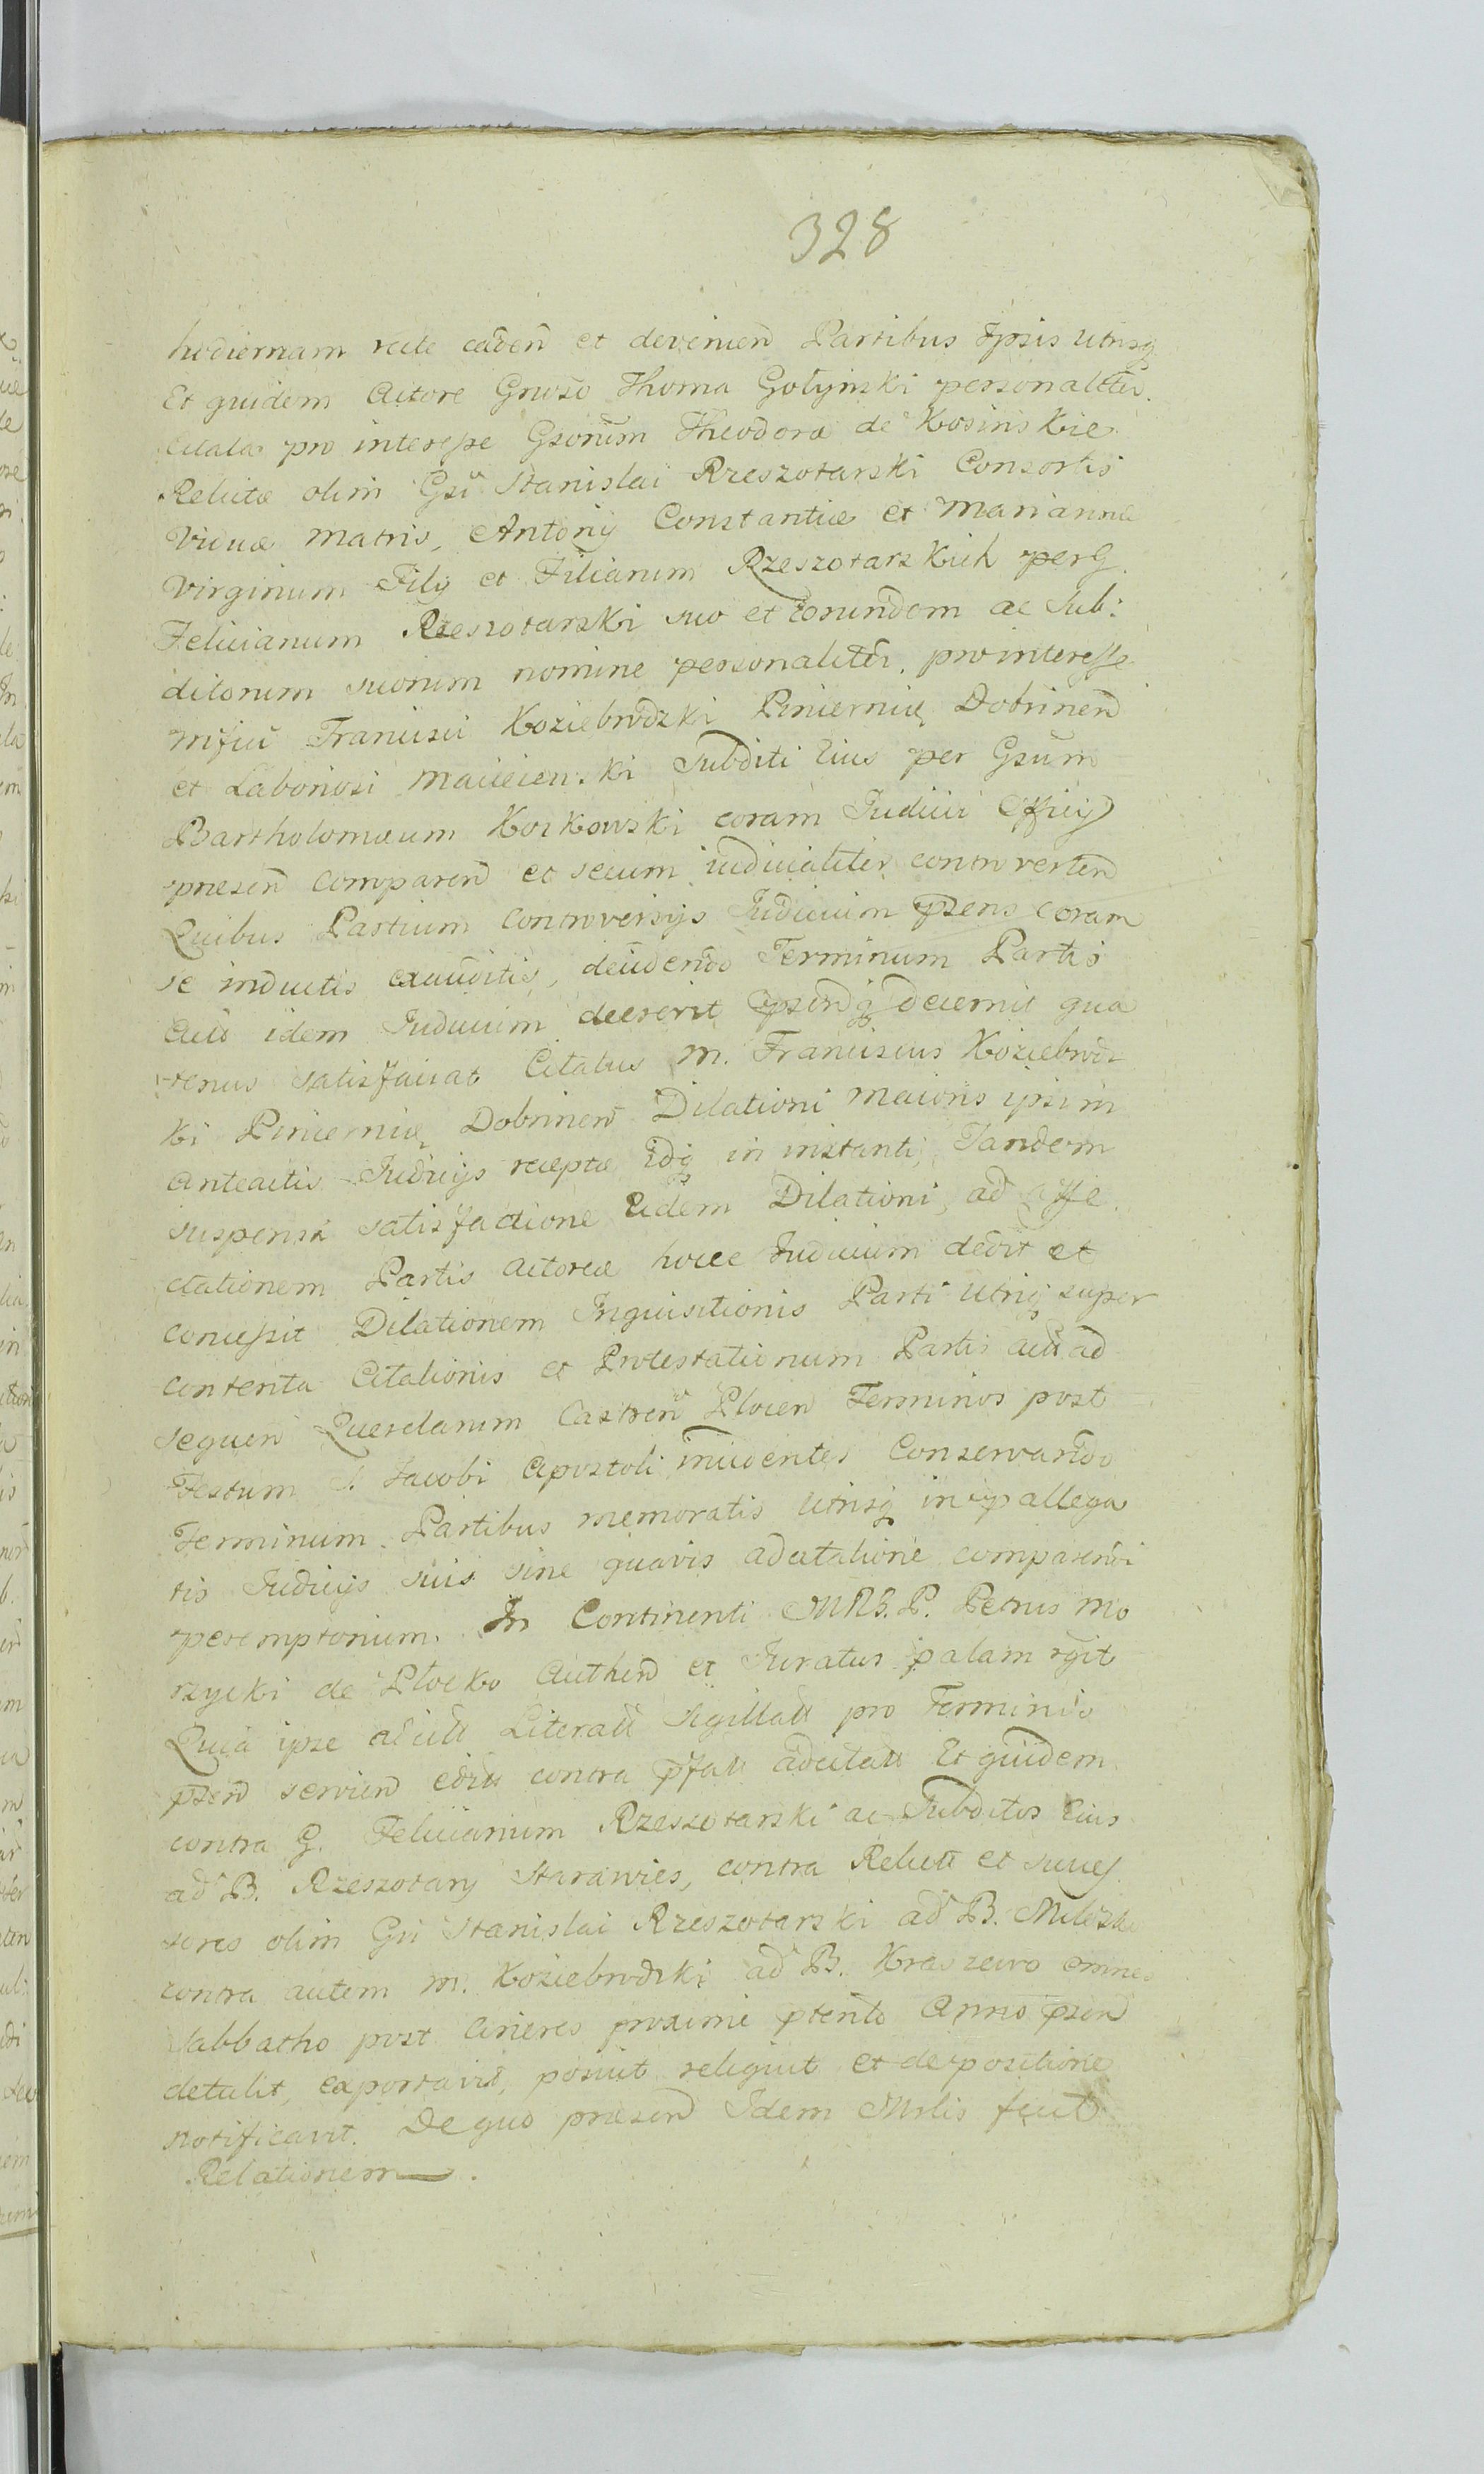 328
hodiernam recte caden et devenien Partibus Ipsis Utrisq
Et quidem Actore Gnoso Thoma Gołyinski personaliter.
Citata pro interesse Gsorum Theodora de Kosinskie
Relictæ olim Gsi Stanislai Rzeszotarski Consortis
Viduæ Matris, Antonij Constantiæ et Mariannæ
Virginum Filij et Filiarum Rzeszotarskich per G.
Felicianum Rzeszotarski suo et eorundem ac Sub:
ditorum suorum nomine personaliter. pro interesse
Mfici Francisci Koziebrodzki Pincernię Dobrinen
et Laboriosi Macieien.ki Subditi Eius per Gsum
Bartholomæum Korkowski coram Iudicii Officij
præsen comparen et secum iudicialiter controverten
Quibus Partium Controversijs Iudicium psens coram
se inductis exauditis, decidendo Terminum Partis
Acto idem Iudicium decrevit psendq decernit qua
tenus satisfaciat Citatus M. Franciscus Koziebrodz
ki Pincernia Dobrinen Dilationi Maioris ipsim
anteactis Iudicijs receptæ idq in instanti, Tandem
suspensa satisfactione Eidem Dilationi, ad affe
ctationem Partis Actoreæ hocce Iudicium dedit et
concessit Dilationem Inquisitionis Parti Utriq super
contenta Citationis et Protestationum Partis actt ad
sequen Querelarum Castren Plocen Terminos post
Festum S. Iacobi Apostoli incidentes Conservando
Terminum Partibus memoratis Utrisq in pallega
tis Iudicijs suis sine quavis adcitatione comparendi
peremptorium. In Continenti MRG. P. Petrus Mo
rzycki de Plocko Authen et Iuratus palam rgit
Quia ipse citatt Literatt Sigillatt pro Terminis
psen servien editt contra pfatt adcitatt Et quidem
contra G. Felicianum Rzeszotarski ac Subditos Eius
ad B. Rzeszotary Starawies, contra Relictt et succes
sores olim Gsi Stanislai Rzeszotarski ad B.
contra autem M. Koziebrodzki ad B. Kraszewo omnes
Sabbatho post Cineres proxime pterito Anno psen
detulit, exportavit, posuit reliquit et depositione
notificavit. De quo præsen Idem Mrlis fecit
Relationem